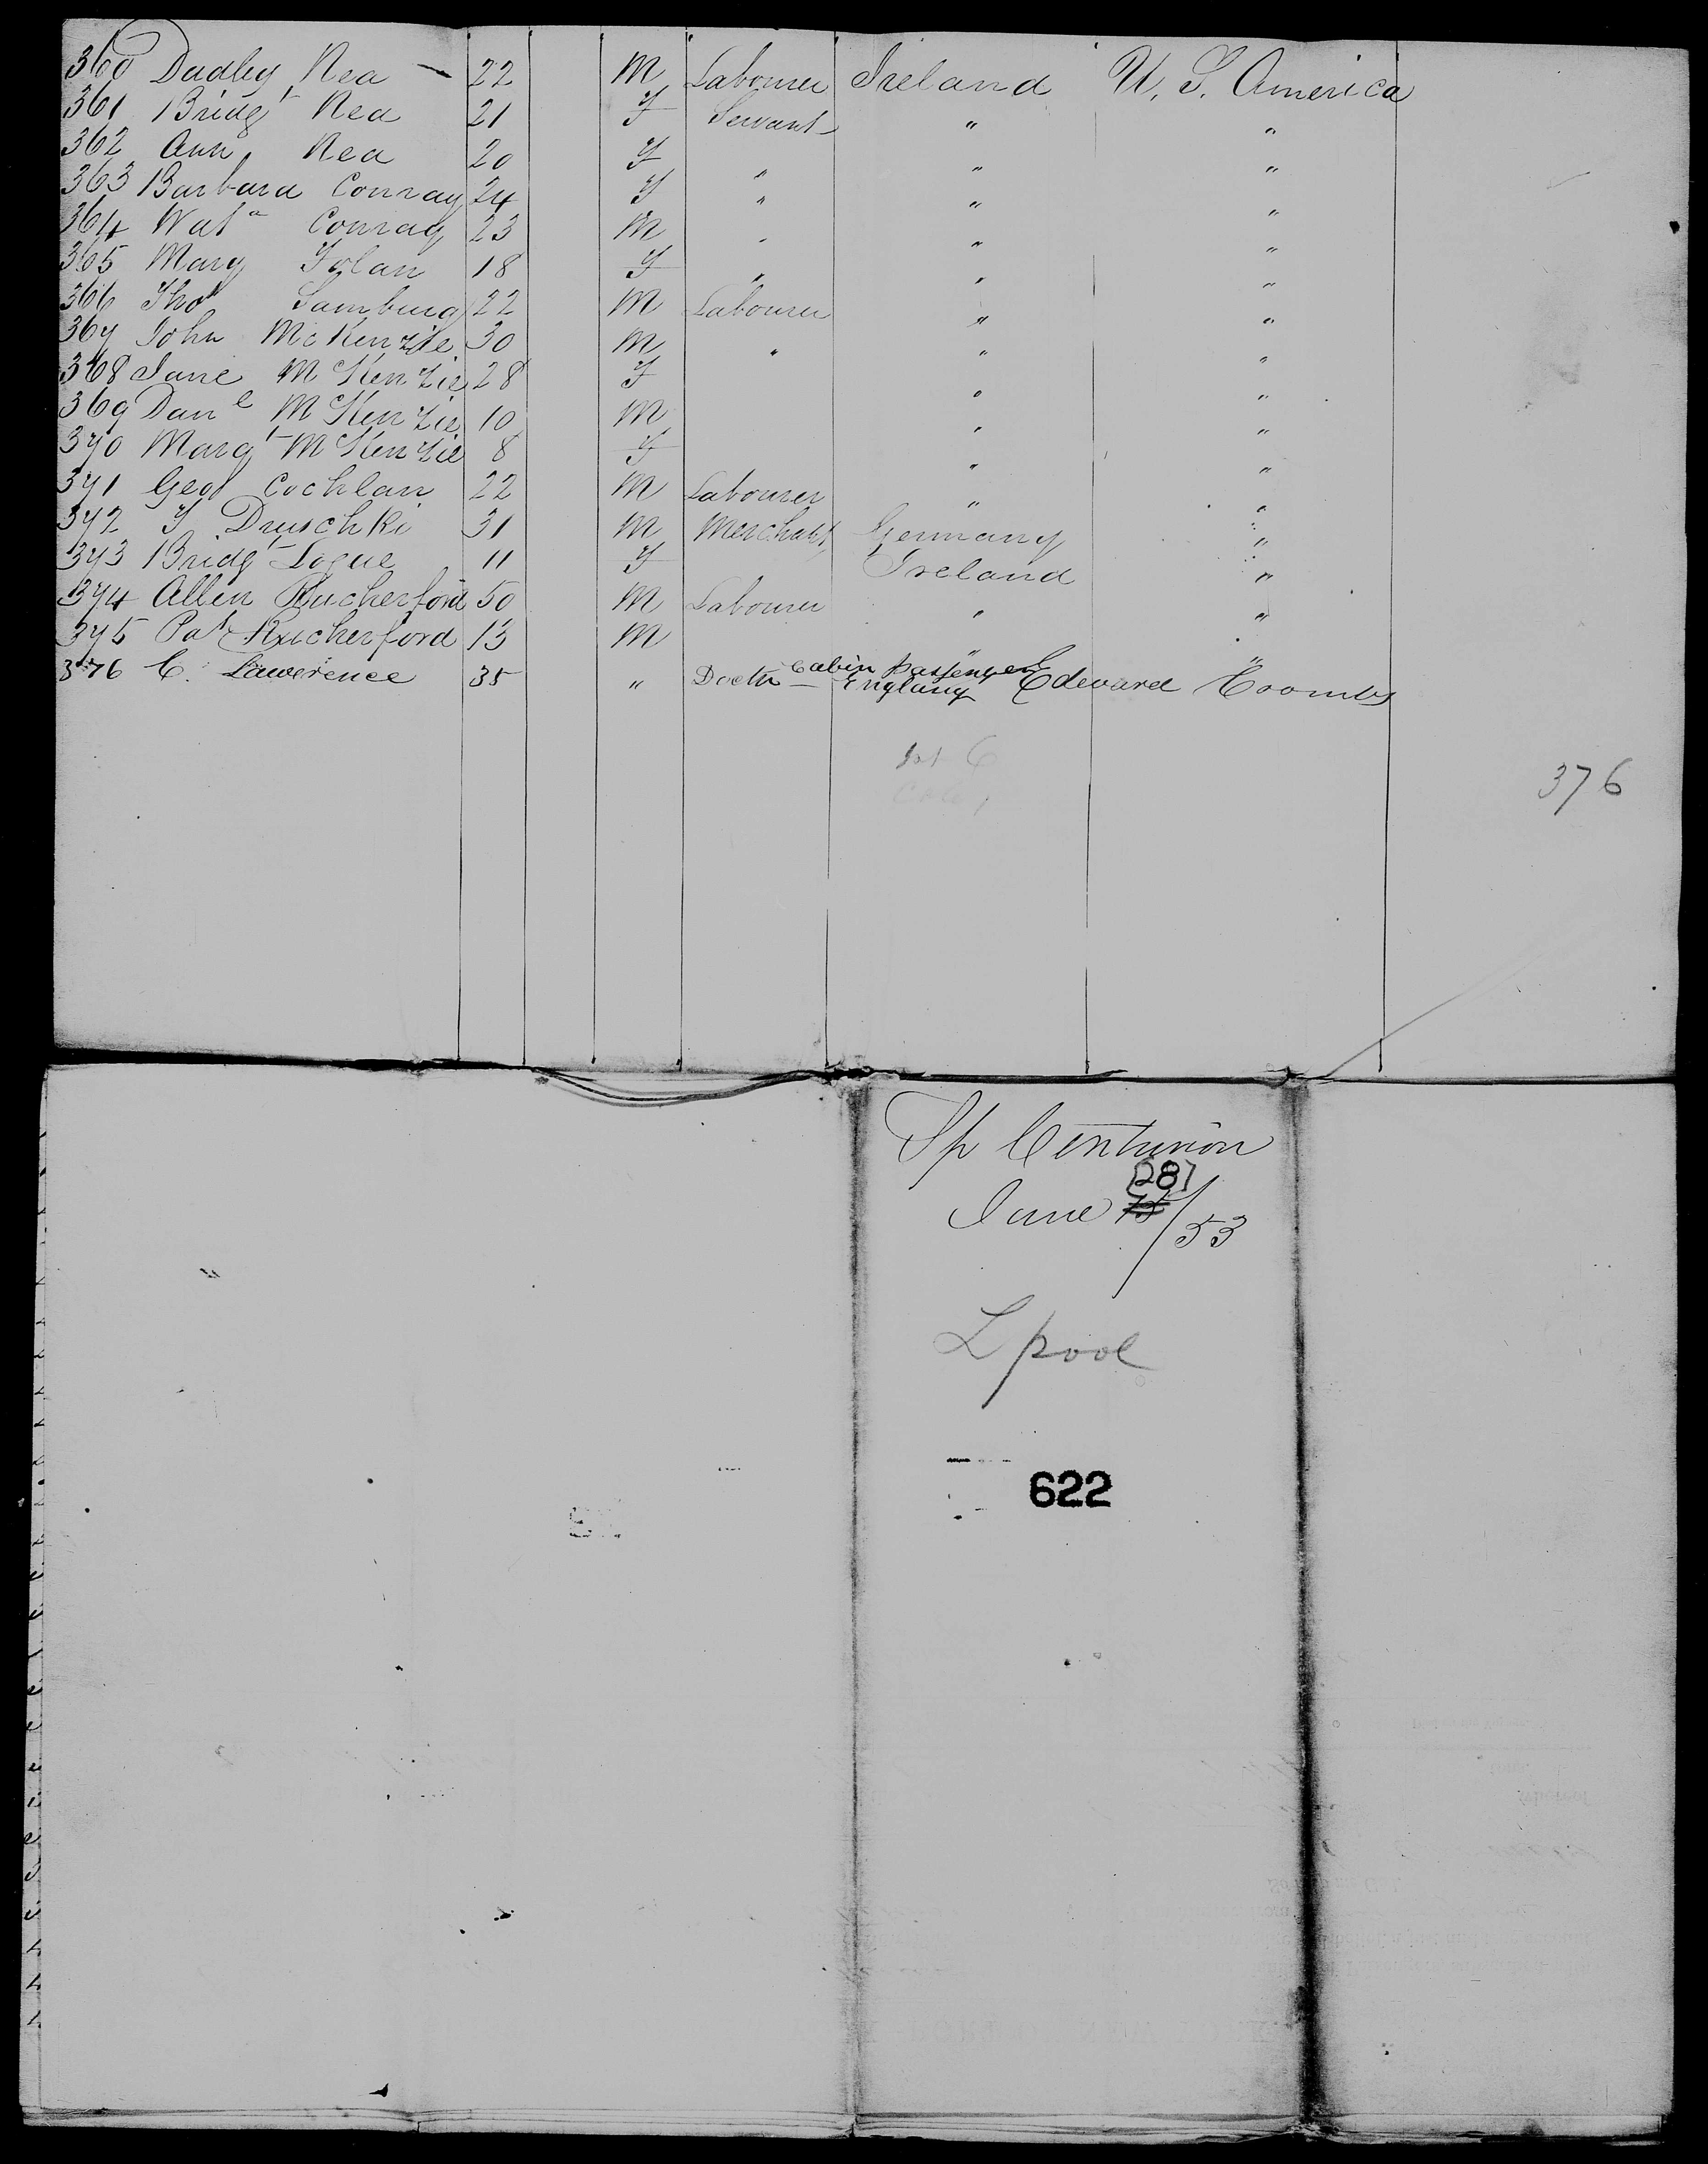 360 Dudley Rea 22 M Labourer Ireland U. S. America
361 Bridgt Rea 21 F Servant " "
362 Ann Rea 20 F " " "
363 Barbara Conray 24 F " " "
364 Watn Conray 23 M " " "
365 Mary Folan 18 F " " "
366 Thos Lamburg 22 M Labourer " "
367 John McKenzie 30 M " " "
368 Jane McKenzie 28 F " "
369 Danl McKenzie 10 M " "
370 Margt McKenzie 8 F " "
371 Geo Cochlan 22 M Labourer " "
372 J Druschki 31 M Merchant Germany "
373 Bridgt Logue 11 F Ireland "
374 Allen Rucherford 50 M Labourer " "
375 Pat Rucherford 13 M " "
Cabin passenger
376 C. Lawerence 35 " Doctr England Edward Coombs
376
Sp Centurion
(28)
June 15/53
Lpool
622